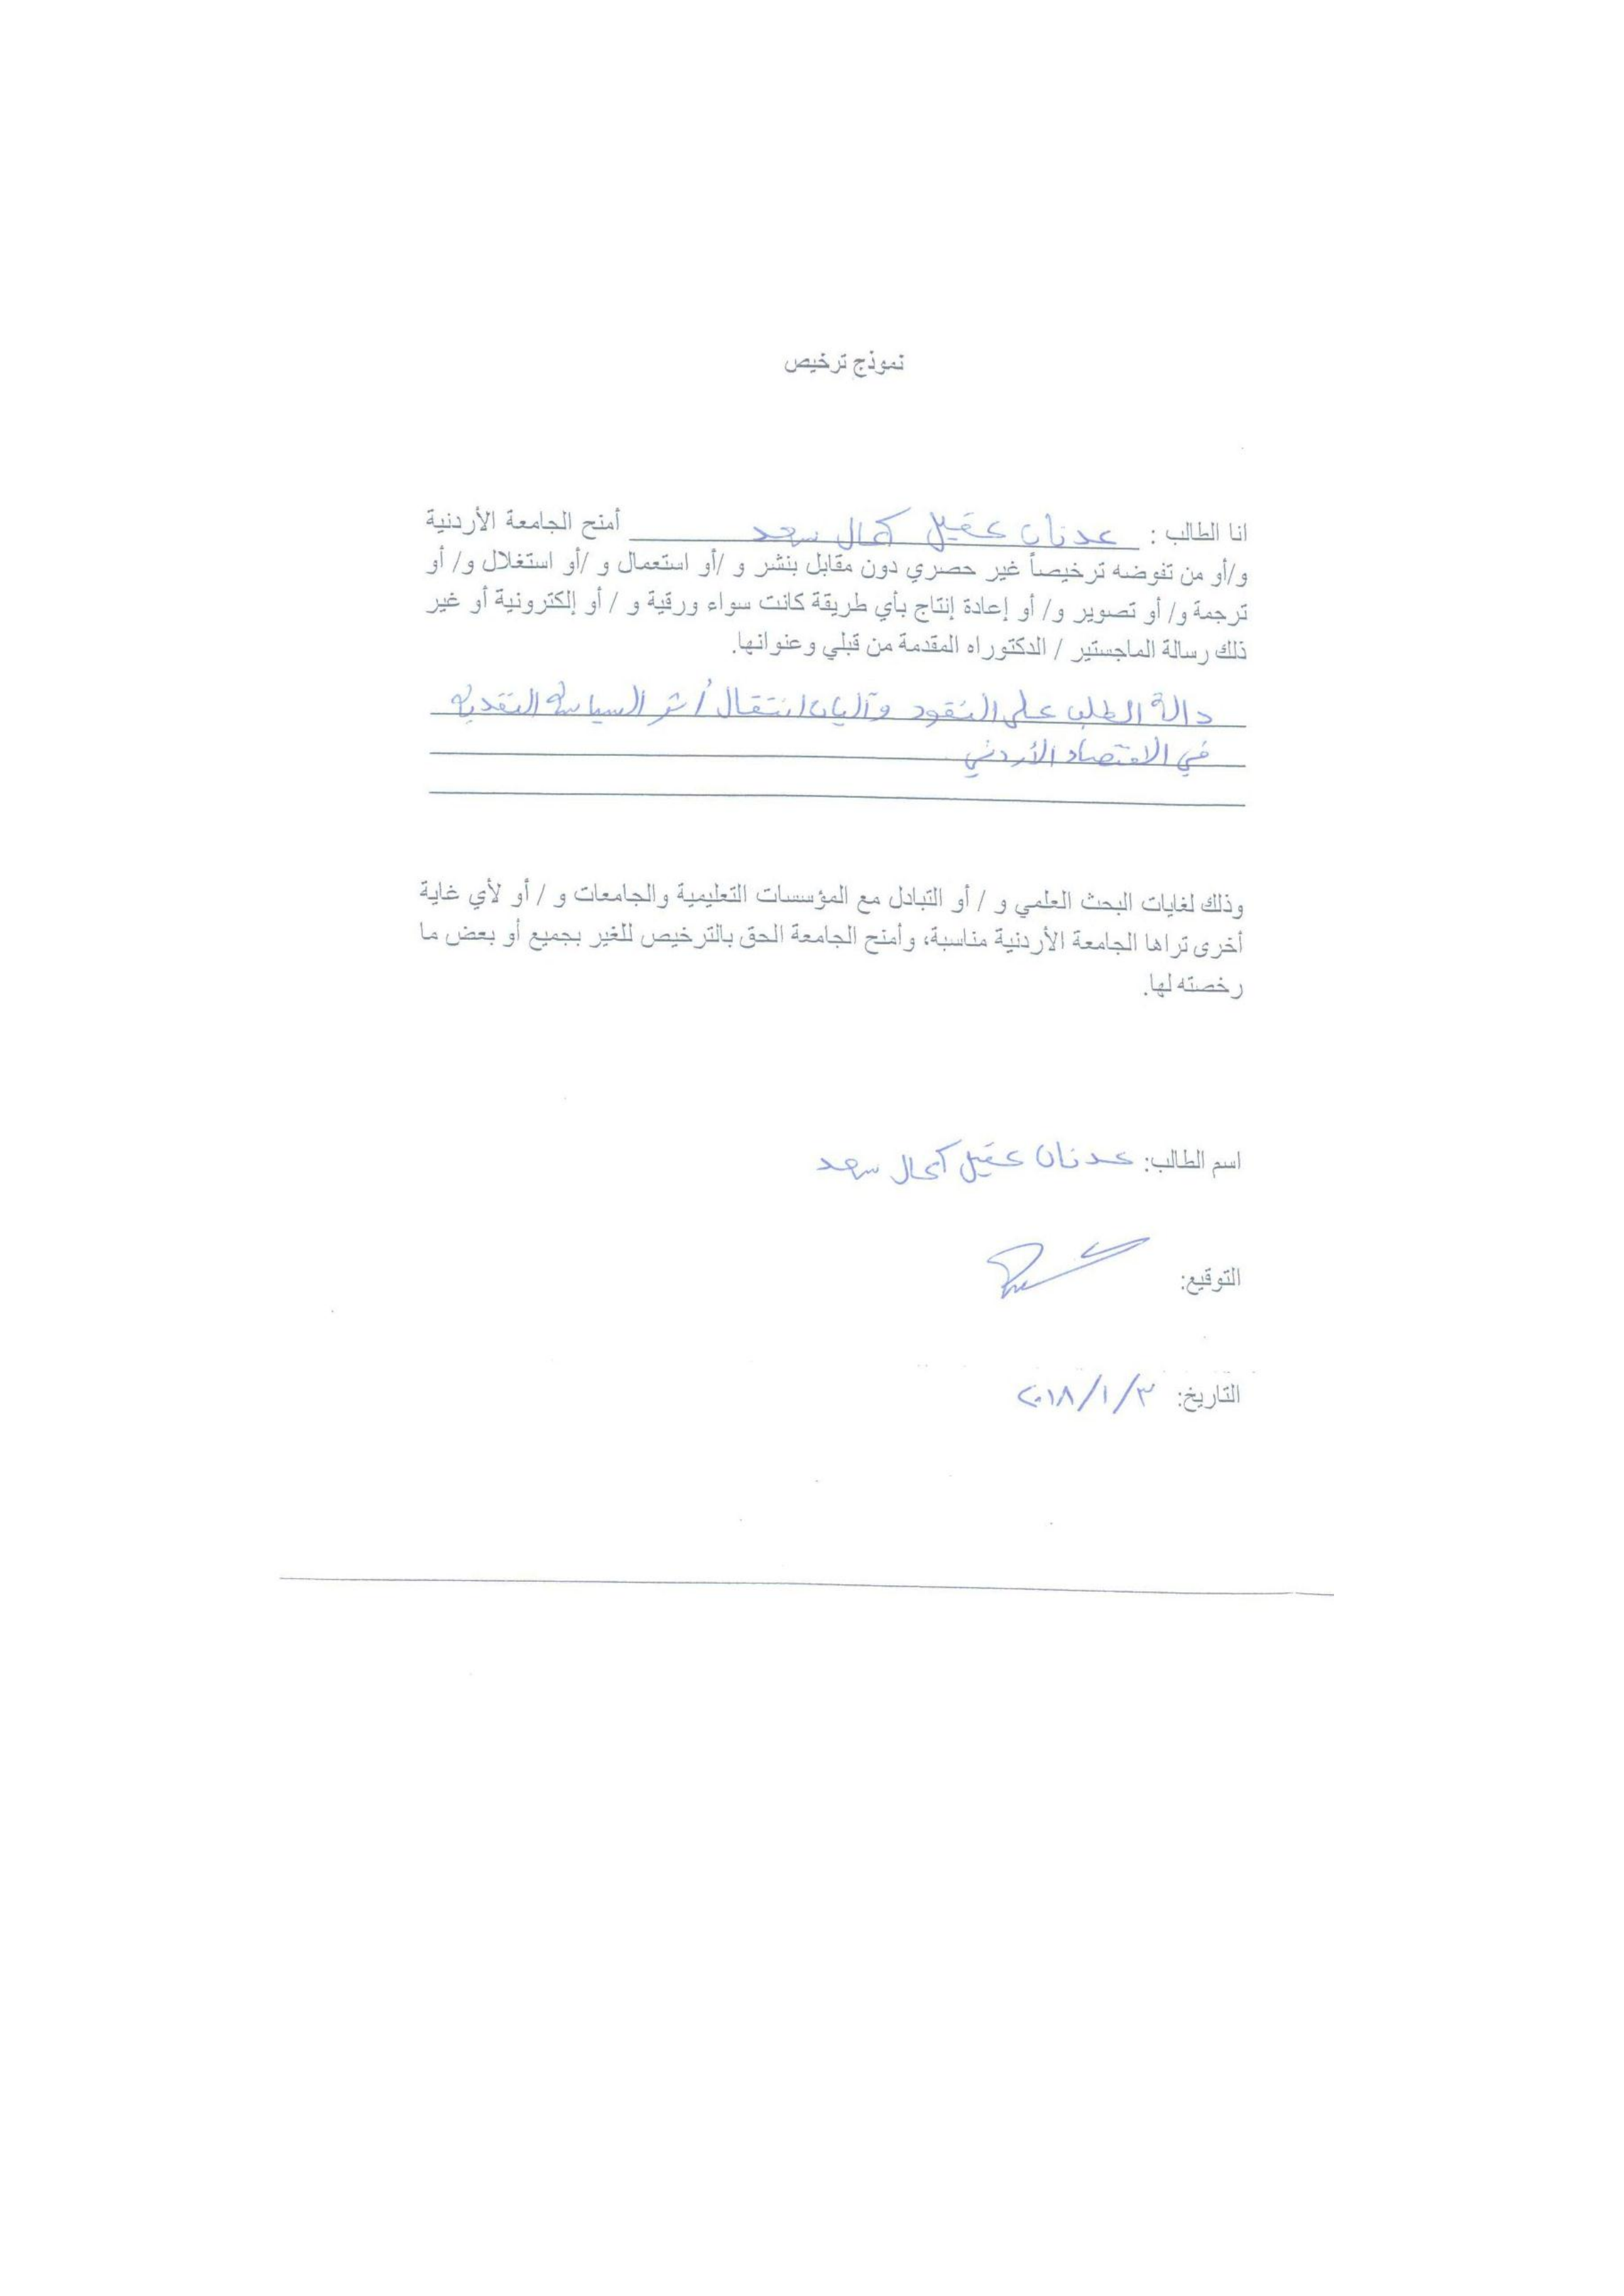 نموذج ترخيص
انا الطالب : عدنان عقيل كمال سعد أمنح الجامعة الأردنية
و/أو من تفوضه ترخيصاً غير حصري دون مقابل بنشر و /أو استعمال و /أو استغلال و/ أو
ترجمة و/ أو تصوير و/ أو إعادة إنتاج بأي طريقة كانت سواء ورقية و / أو إلكترونية أو غير
ذلك رسالة الماجستير / الدكتوراه المقدمة من قبلي وعنوانها.
دالة الطلب على النقود وآليات انتقال أثر السياسة النقدية
في الاقتصاد الأردني
وذلك لغايات البحث العلمي و / أو التبادل مع المؤسسات التعليمية والجامعات و / أو لأي غاية
أخرى تراها الجامعة الأردنية مناسبة، وأمنح الجامعة الحق بالترخيص للغير بجميع أو بعض ما
رخصته لها.
اسم الطالب: عدنان عقيل كمال سعد
التوقيع:
التاريخ: ٣/١/٢٠١٨